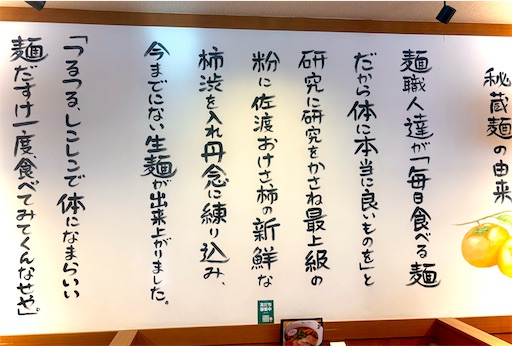 秘蔵麺の由来
麺職人達が「毎日食べる麺
だから体に本当に良いものを」と
研究に研究をかさね最上級の
粉に佐渡おけさ柿の新鮮な
柿渋を入れ丹念に練り込み、
今までにない生麺が出来上がりました。
「つるつる、しこしこで体になまらいい
麺だすけ一度食べてみてくんなせや。」